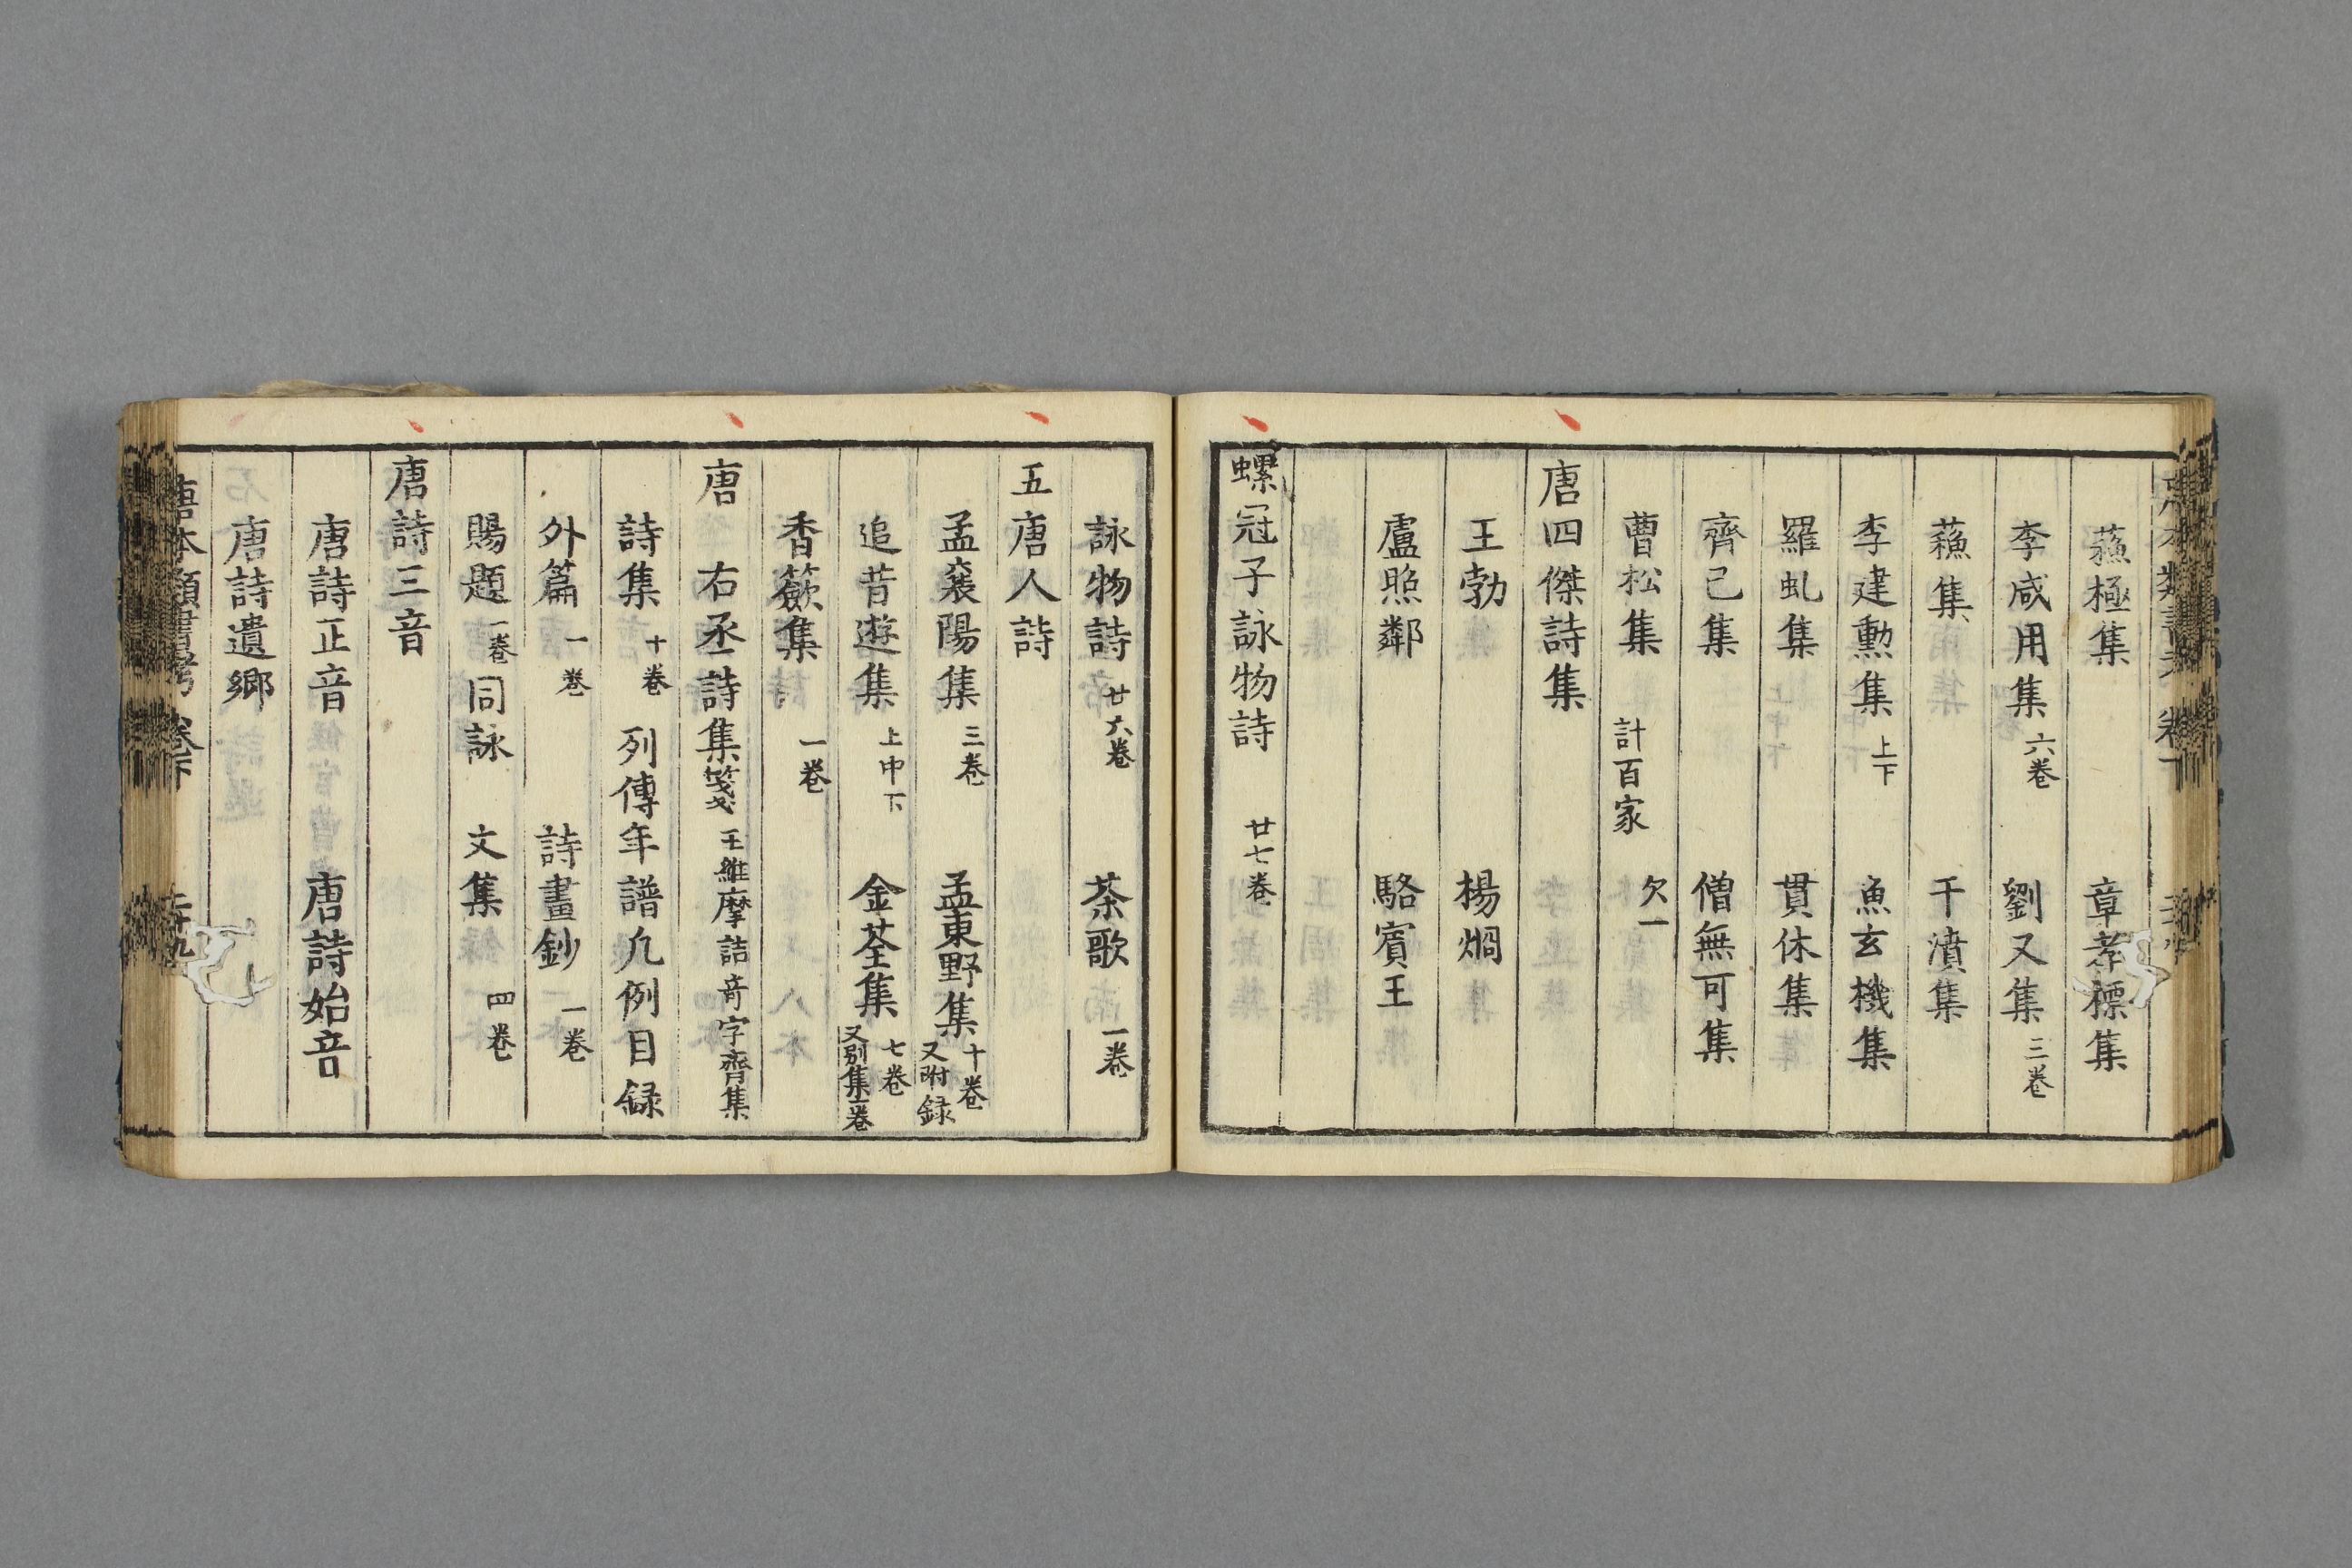 蘓極集 章孝標集
李咸用集 六卷 劉叉集 三卷
蘓集 于濆集
李建勲集 上下 魚玄機集
羅虬集 貫休集
齊己集 僧無可集
曹松集 計百家 欠一
唐四傑詩集
王勃 楊烱
盧照鄰 駱賓王
螺冠子詠物詩 廿七卷
詠物詩 廿六卷 茶歌 一卷
五唐人詩
孟襄陽集 三卷 孟東野集 十卷 又附録
追昔遊集 上中下 金荃集 七卷 又别集一卷
香奩集 一卷
唐 右丞詩集箋 王維摩詰竒字齊集
詩集 十卷 列傳年譜凡例目録
外篇 一卷 詩畫鈔 一卷
賜題 一卷 同詠 文集 四卷
唐詩三音
唐詩正音 唐詩始音
唐詩遺鄉
唐本類書考 卷下